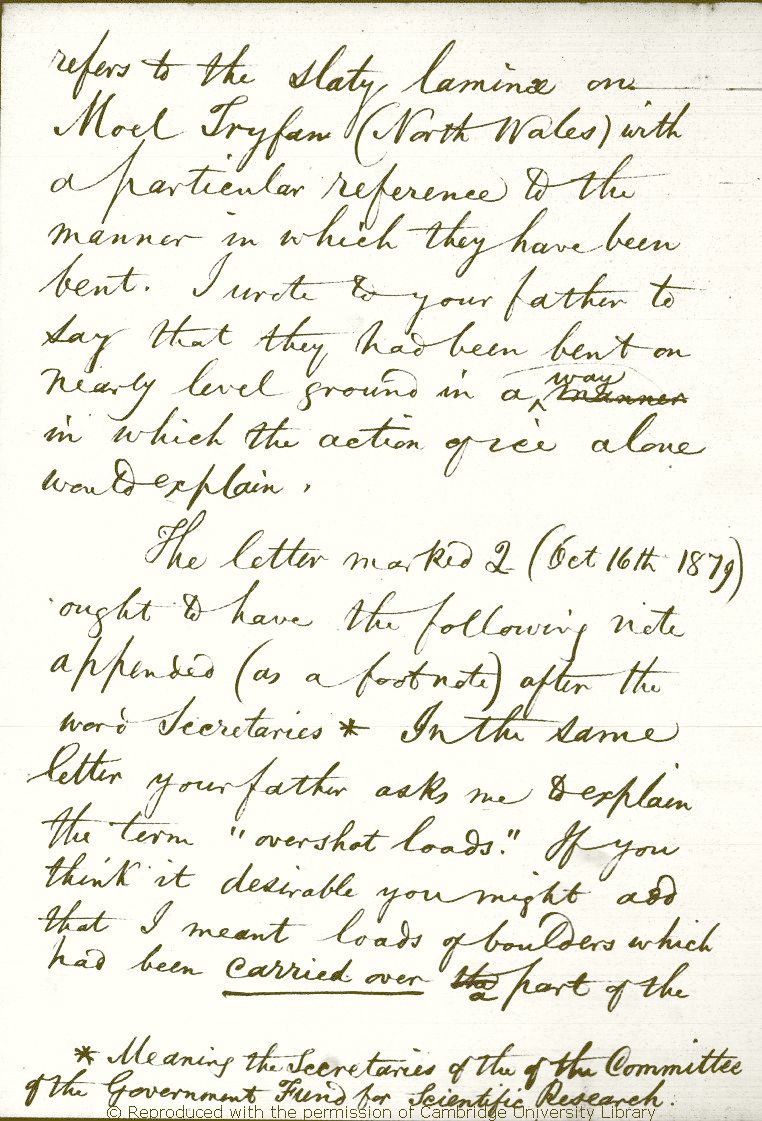 refers to the slaty laminæ on
Moel Tryfan (North Wales) with
a particular reference to the
manner in which they have been
bent. I wrote to your father to
say that they had been bent on
nearly level ground in a way manner
in which the action of ice alone
would explain.
The letter marked 2 (Oct 16th 1879)
ought to have the following note
appended (as a footnote) after the
word Secretaries * In the same
letter your father asks me to explain
the term "overshot loads." If you
think it desirable you might add
that I meant loads of boulders which
had been carried over the a part of the
* Meaning the Secretaries of the of the Committee
of the Government Fund for Scientific Research.
© Reproduced with the permission of Cambridge University Library